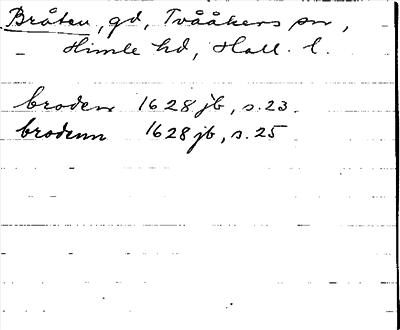 Bråten, gd, Tvååkers sn,
Himle hd, Hall. l.
broden 1628 jb, s. 23.
brodenn 1628 jb, s. 25